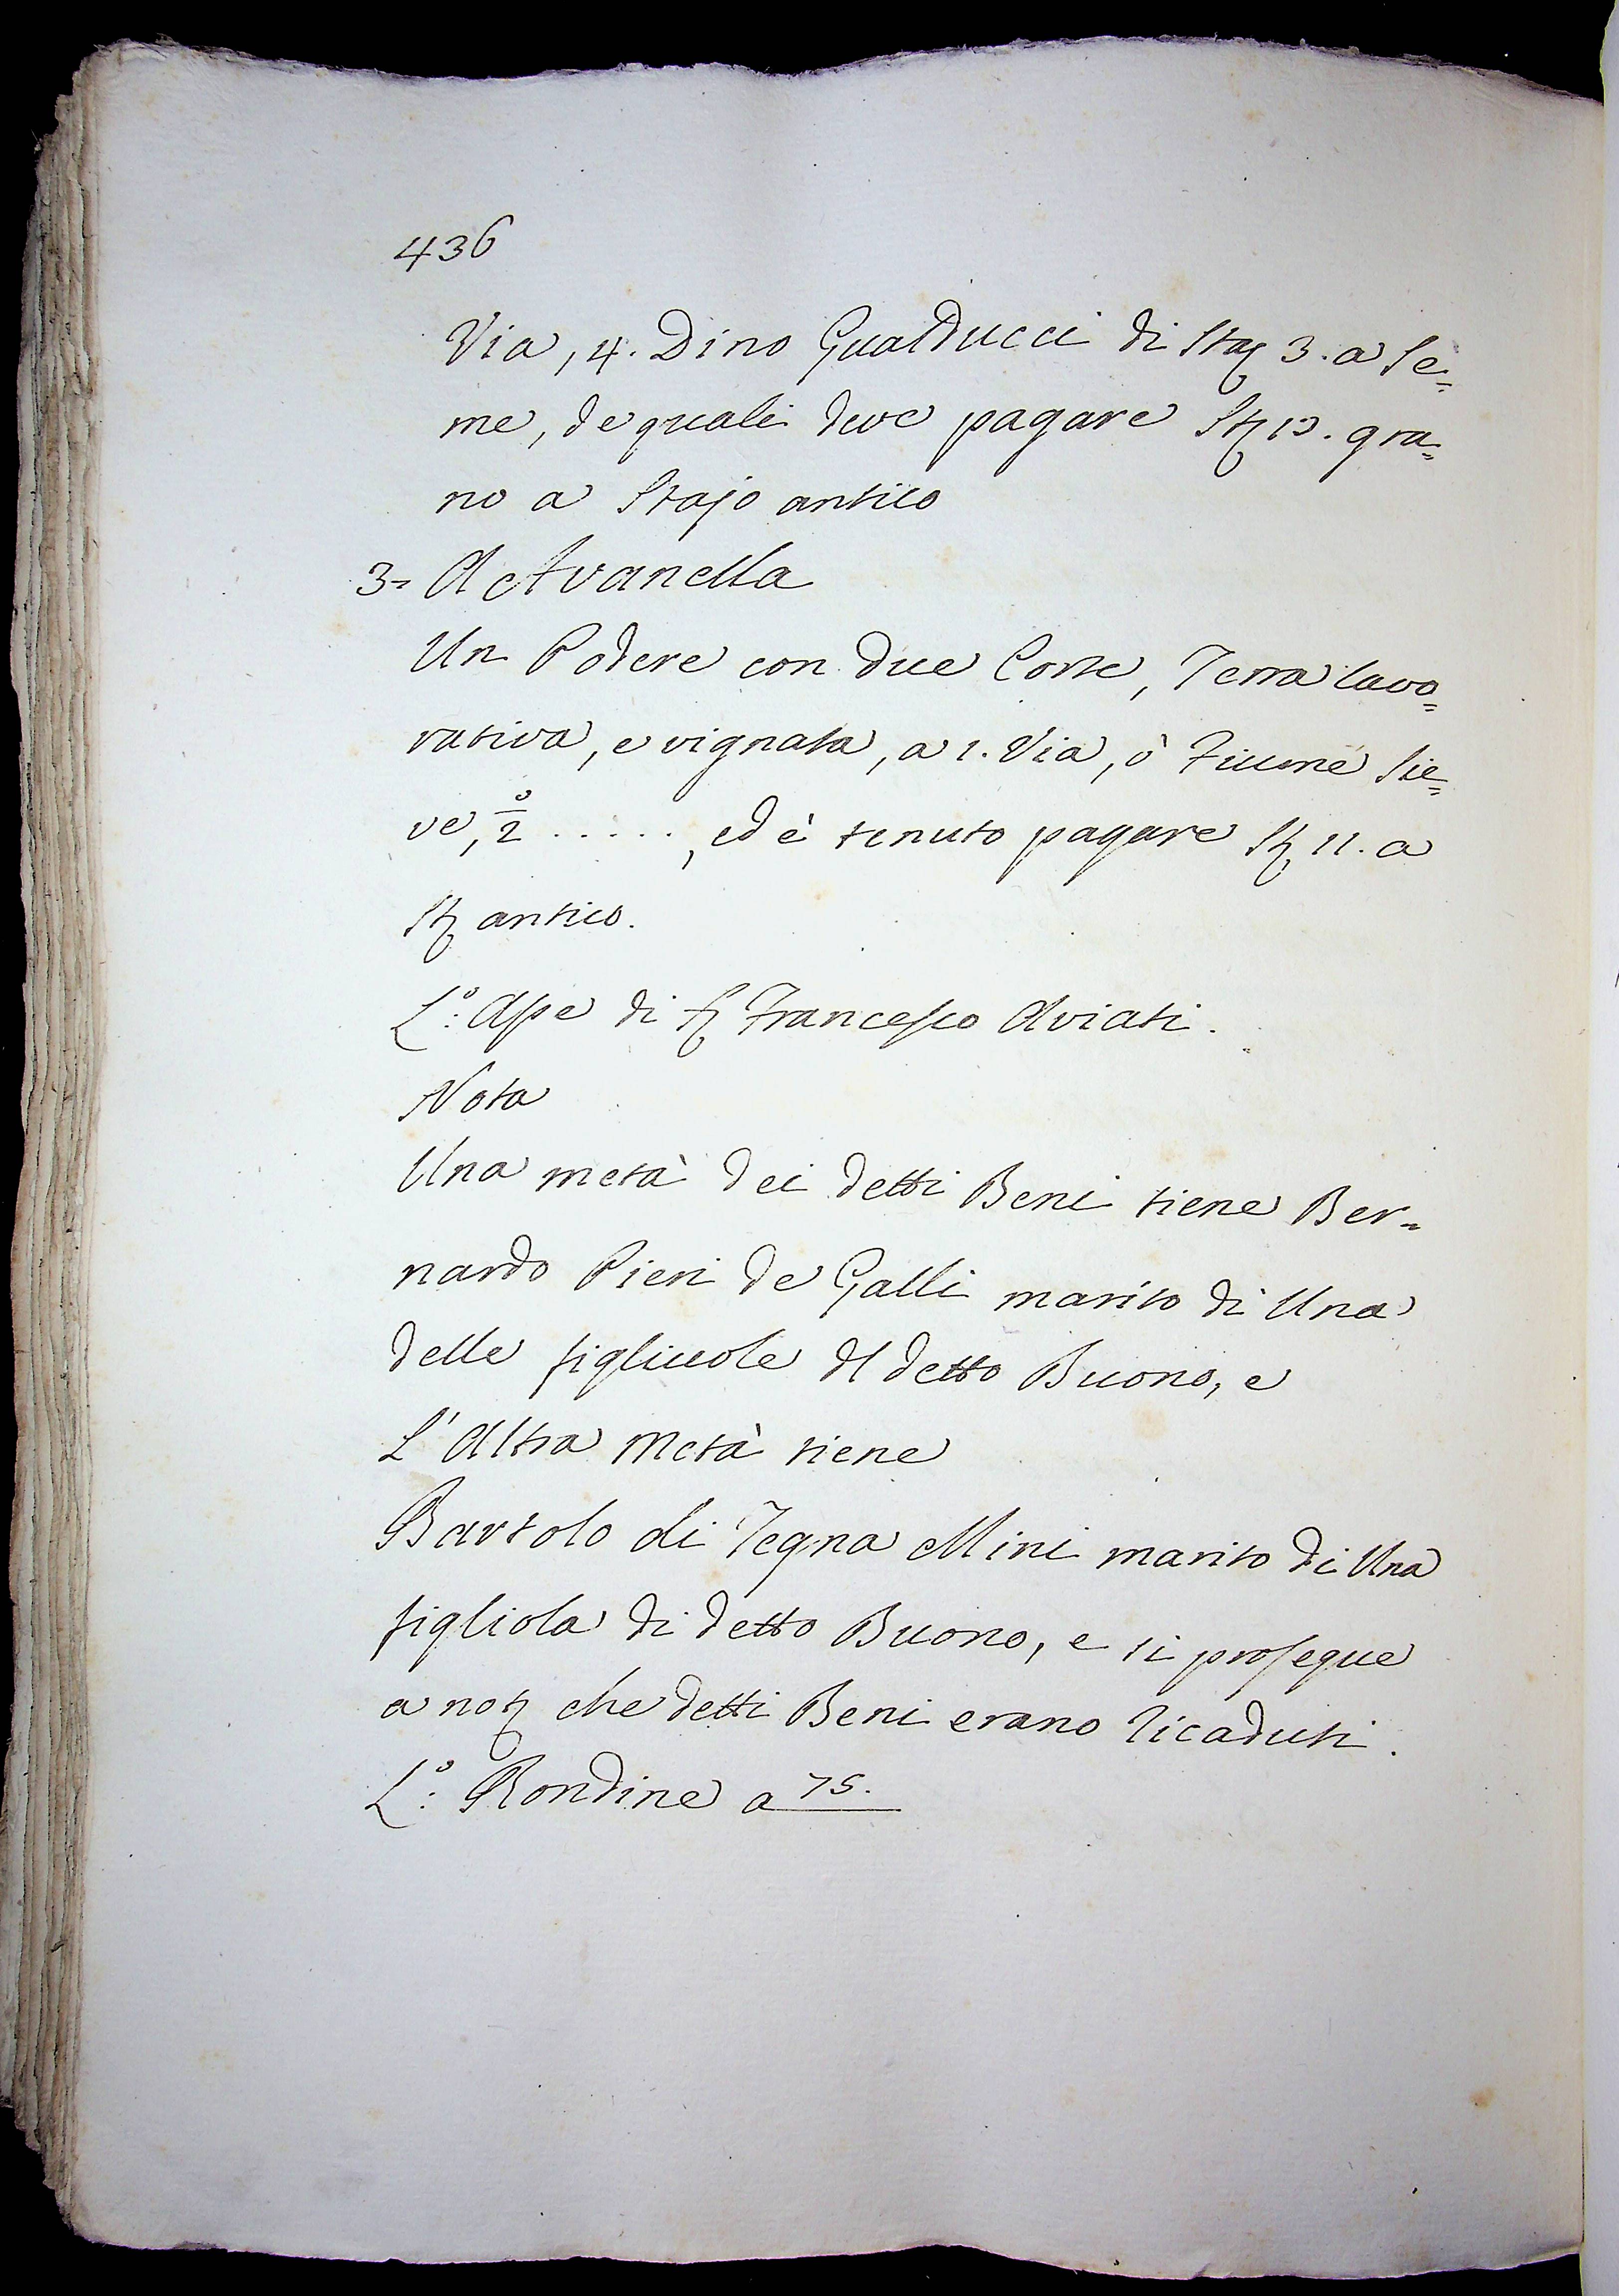 436
Via, 4. Dino Gualducci di Staj 3. a Se=
me, de quali deve pagare St 13. gra=
no a Stajo antico
3= A Avanella
Un Podere con due Corte, Terra lavo=
rativa, e vignata, a 1. Via, ò Fiume Sie=
ve, 2° ....., ed è tenuto pagare St 11. a
St antico.
L:° Ape di Francesco Aviati.
Nota
Una metà dei detti Beni tiene Ber=
nardo Pieri de Galli marito di Una
delle figliuole dl detto Buono, e
L'Altra Metà tiene
Bartolo di Tegna Mini marito di Una
figliola di detto Buono, e si prosegue
a not che detti Beni erano ricaduti.
L:° Rondine a 75.